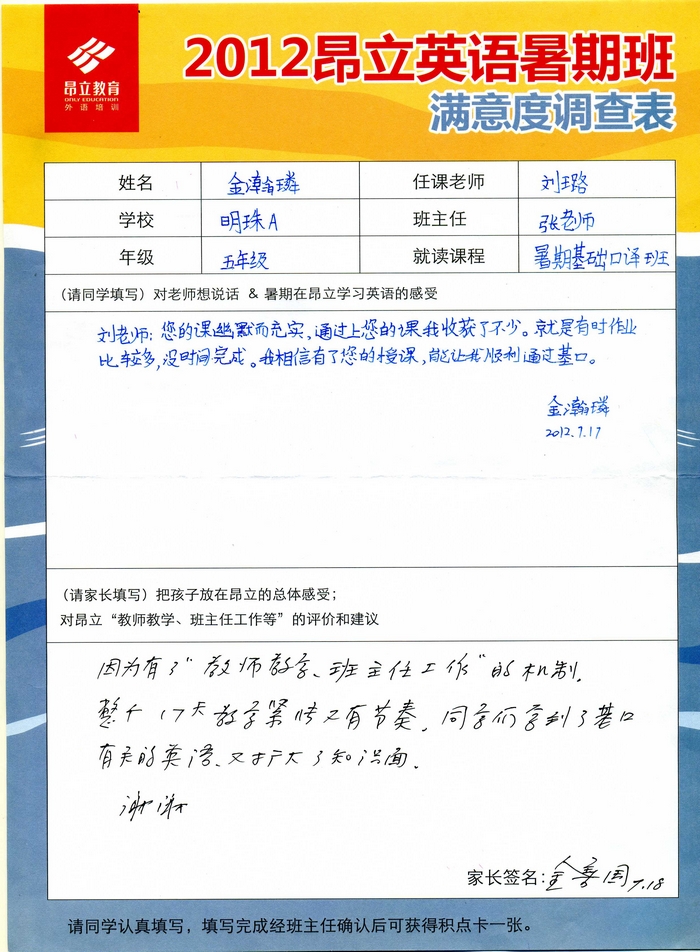 昂立教育
ONLY EDUCATION
外语培训
2012昂立英语暑期班
满意度调查表
姓名 金瀚璘 任课老师 刘璐
学校 明珠A 班主任 张老师
年级 五年级 就读课程 暑期基础口译班
(请同学填写)对老师想说话 & 暑期在昂立学习英语的感受
刘老师:您的课幽默而充实,通过上您的课我收获了不少。就是有时作业
比较多,没时间完成。我相信有了您的授课,能让我顺利通过基口。
金瀚璘
2012.7.17
(请家长填写)把孩子放在昂立的总体感受;
对昂立“教师教学、班主任工作等”的评价和建议
因为有了“教师教学、班主任工作”的机制,
整个17天教学紧凑又有节奏,同学们学到了基口
有关的英语、又扩大了知识面。
谢谢
家长签名:金善国 7.18
请同学认真填写,填写完成经班主任确认后可获得积点卡一张。